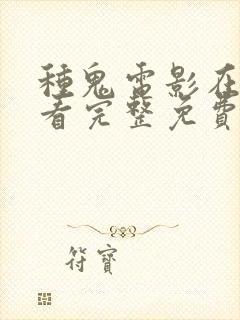 種鬼電影在
看完整免費
符寶